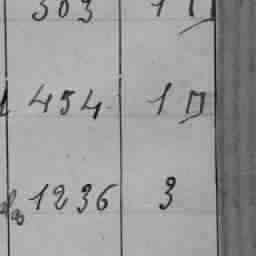 303 1
454 1 П
1236 3